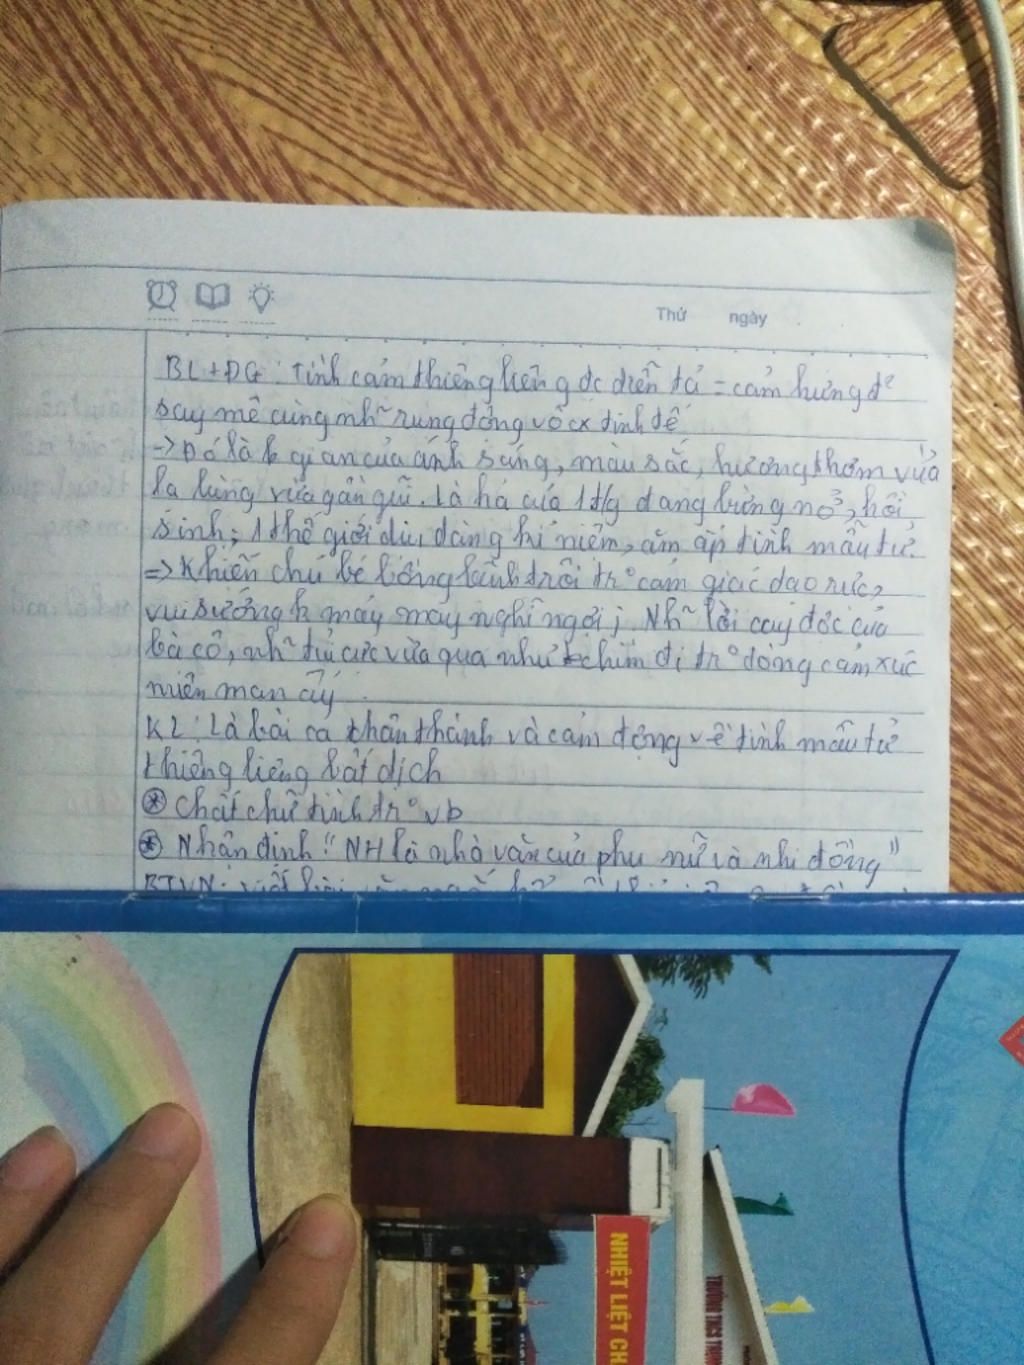 Thứ ngày
BL + ĐG: Tình cảm thiêng liêng đc diễn tả = cảm hứng đ²
say mê cùng nh~ rung động vô cx tinh tế
-> Đó là k gian của ánh sáng, màu sắc, hương thơm vừa
lạ lùng vừa gần gũi. Là h/a của 1 t/g đang bừng nở, hồi
sinh; 1 thế giới dịu dàng kỉ niệm, ấm áp tình mẫu tử.
=> Khiến chú bé bồng bềnh trôi tr° cảm giác dạo rực,
vui sướng k mảy may nghĩ ngợi; Nh~ lời cay độc của
bà cô, nh~ tủi cực vừa qua như chìm đi tr° dòng cảm xúc
miên man ấy.
KL: Là bài ca chân thành và cảm động về tình mẫu tử
thiêng liêng bất diệt
* Chất chữ tình tr° vb
* Nhận định "NH là nhà văn của phụ nữ và nhi đồng"
BTVN: viết bài văn
NHIỆT LIỆT CH
TRƯỜNG THCS